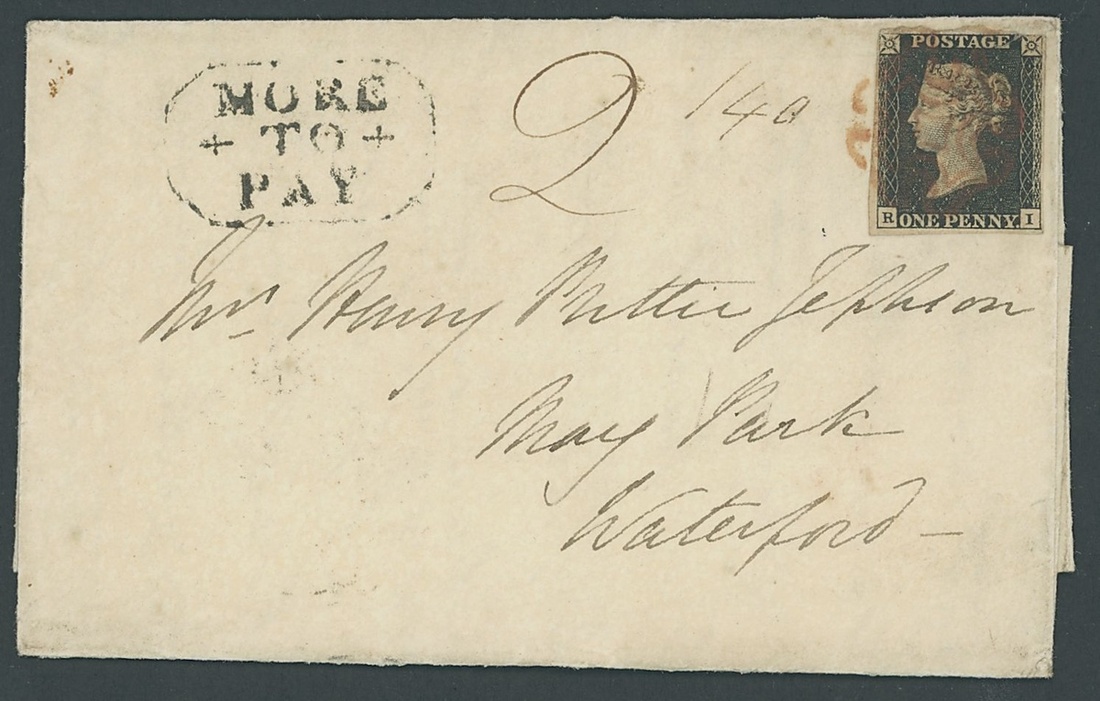 MORE
+ TO +
PAY
2
140
POSTAGE
R ONE PENNY. I
Mr. Henry Jephson
May Park
Waterford –